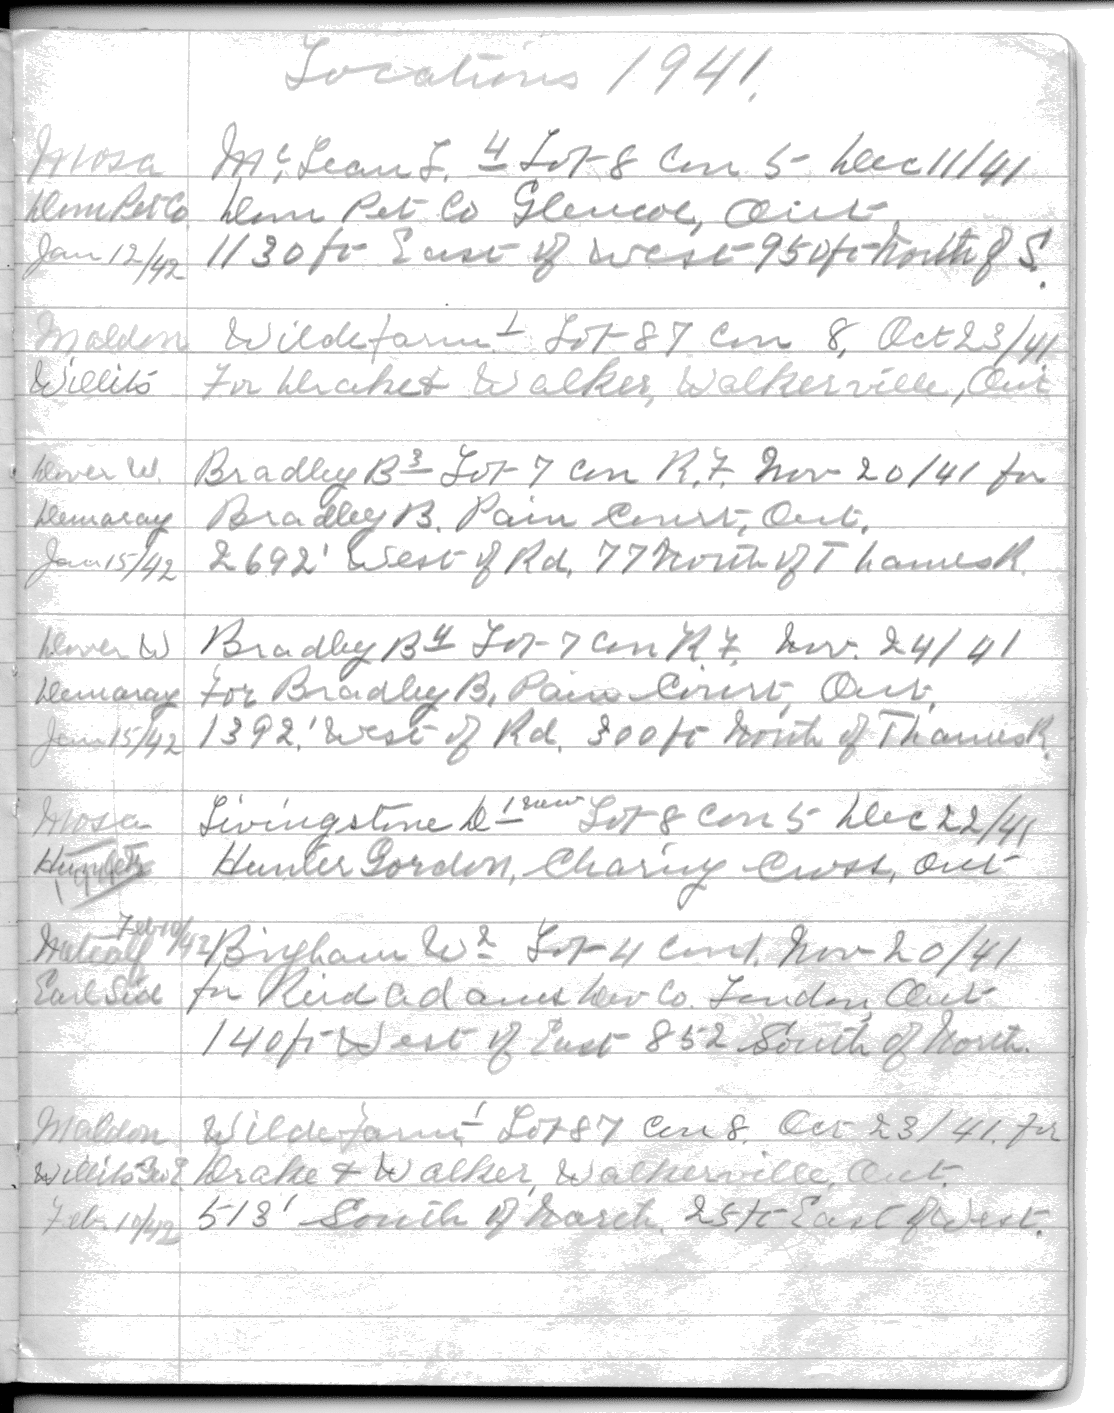 Locations 1941.
Mosa McLean J. 4 Lot 8 Con 5 Dec 11/41
Dom Pet Co. Dom Pet Co Glencoe, Ont.
Jan 12/42 1130 ft East of West 950 ft North of S.
Maldon Wildefarm 1 Lot 87 Con 8, Oct 23/41
Willits For Drake & Walker, Walkerville, Ont
Dover W. Bradley B 3 Lot 7 Con R.F. Nov 20/41 for
Demaray Bradley B. Pain Court, Ont.
Jan 15/42 2692' West of Rd, 77 North of Thames R.
Dover W Bradley B 4 Lot 7 Con R F. Nov. 24/41
Demaray For Bradley B, Pain Court, Ont.
Jan 15/42 1392' West of Rd. 300 ft North of Thames R.
Mosa Livingstone D 1 new Lot 8 Con 5 Dec 22/41
Hunter Gordon, Charing Cross, Ont
Feb 10/42
Metcalf Bingham W 2 Lot 4 Con 1. Nov 20/41
Earl Sid for Reid Adams Dev Co. London, Ont
140 ft West of East 852 South of North.
Maldon Wildefarm 1 Lot 87 Con 8. Oct 23/41. For
Willits Drake & Walker, Walkerville, Ont.
Feb. 10/42 513' South of North. 25 ft East of West.